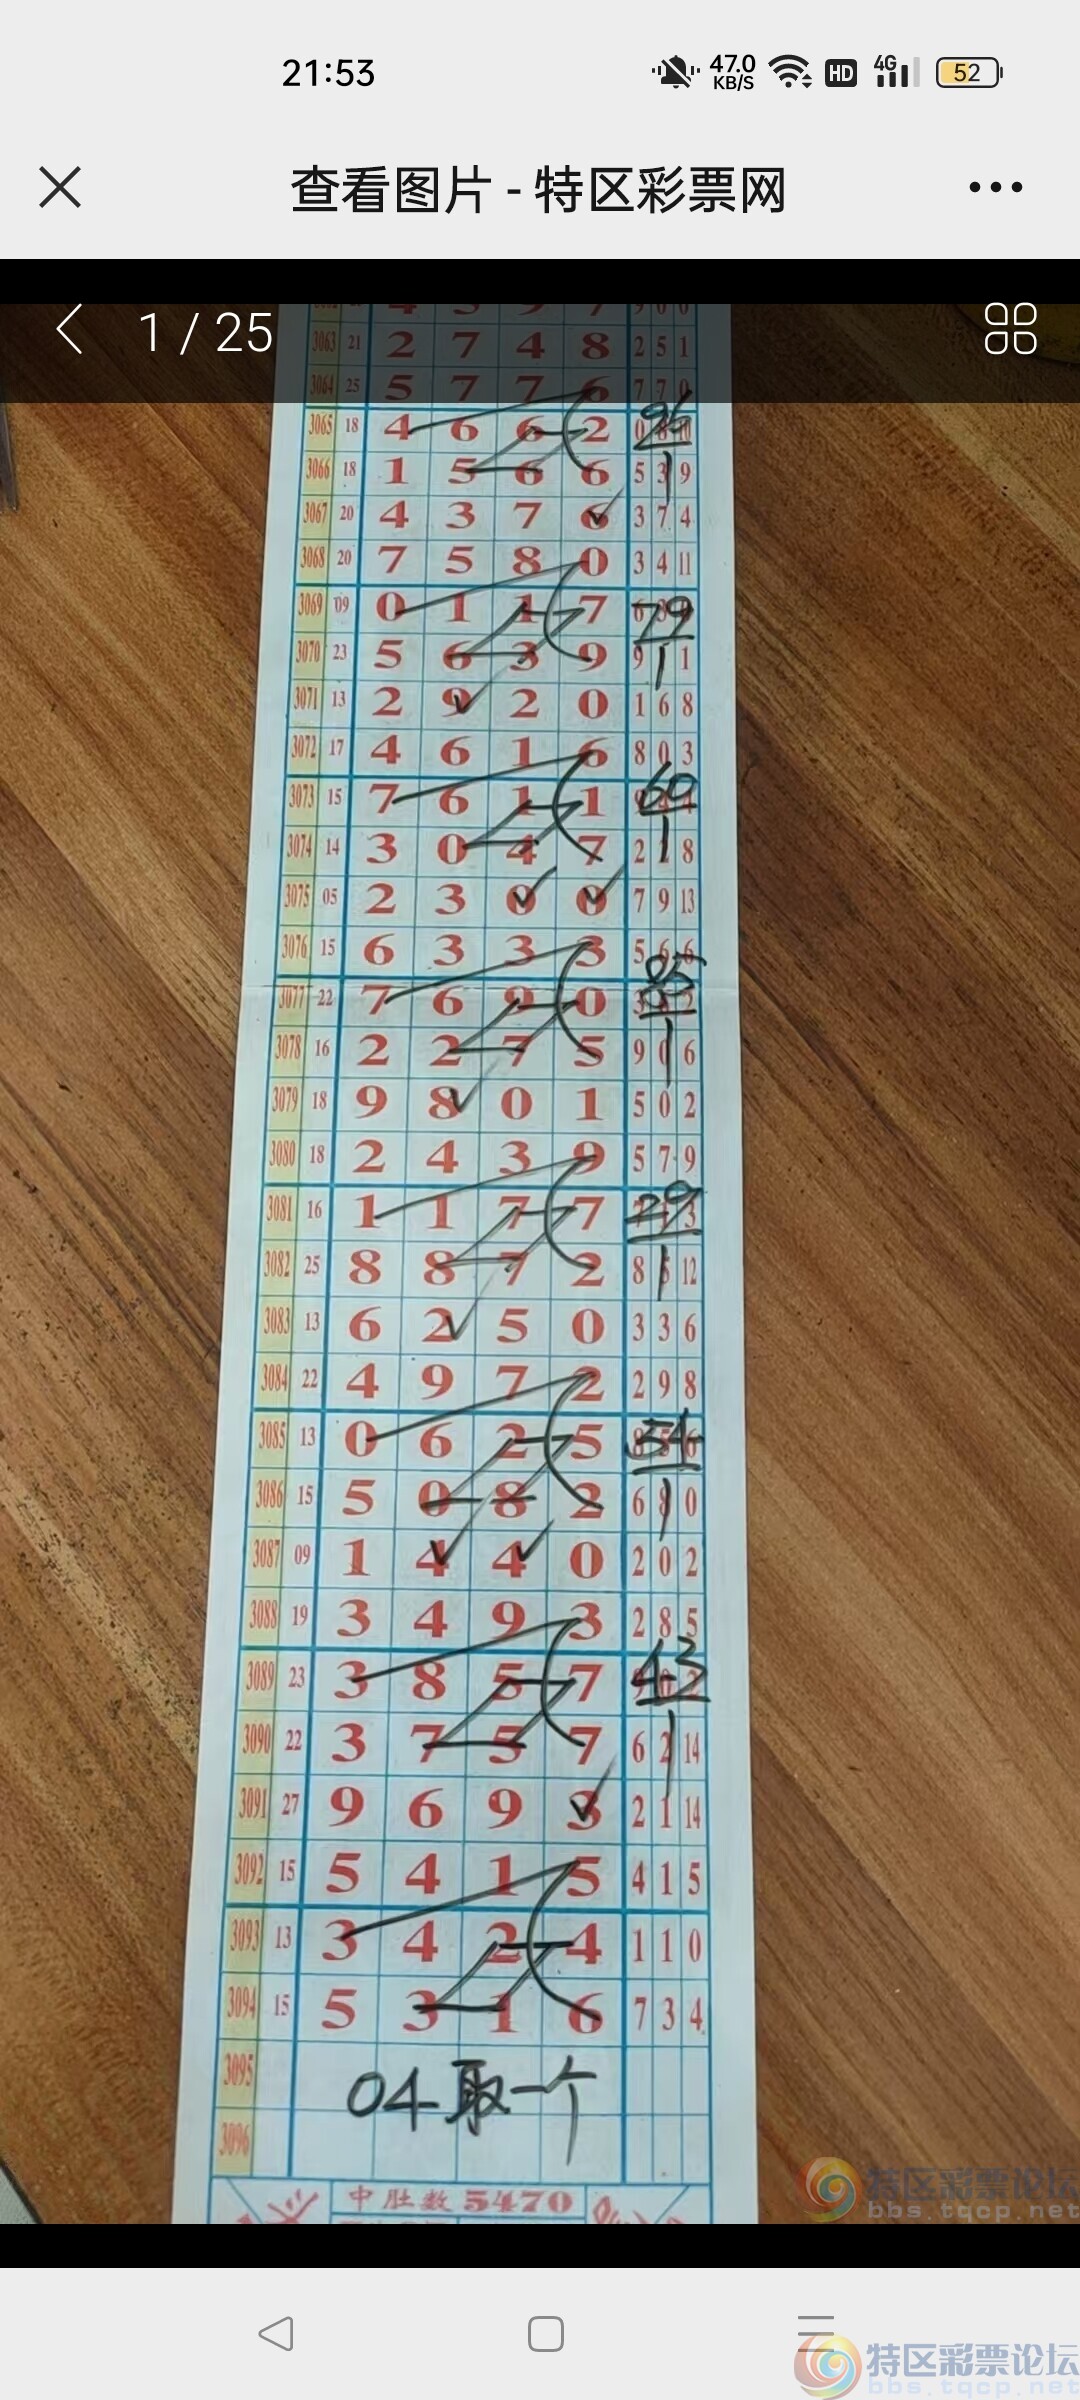 21:53
47.0 KB/S HD 4G 52
查看图片 - 特区彩票网
1 / 25
3063 21 2 7 4 8 2 5 1
3064 25 5 7 7 6 7 7 0
3065 18 4 6 6 2 0
96
3066 18 1 5 6 6 5 3 9
3067 20 4 3 7 6 3 7 4
3068 20 7 5 8 0 3 4 11
3069 09 0 1 1 7 6
79
3070 23 5 6 3 9 9 1
3071 13 2 9 2 0 1 6 8
3072 17 4 6 1 6 8 0 3
3073 15 7 6 1 1
60
3074 14 3 0 4 7 2 8
3075 05 2 3 0 0 7 9 13
3076 15 6 3 3 3 5 6 6
3077 22 7 6 9 0 3
85
3078 16 2 2 7 5 9 0 6
3079 18 9 8 0 1 5 0 2
3080 18 2 4 3 9 5 7 9
3081 16 1 1 7 7 3
29
3082 25 8 8 7 2 8 5 12
3083 13 6 2 5 0 3 3 6
3084 22 4 9 7 2 2 9 8
3085 13 0 6 2 5
54
3086 15 5 0 8 2 6 8 0
3087 09 1 4 4 0 2 0 2
3088 19 3 4 9 3 2 8 5
3089 23 3 8 5 7
43
3090 22 3 7 5 7 6 2 14
3091 27 9 6 9 3 2 1 14
3092 15 5 4 1 5 4 1 5
3093 13 3 4 2 4 1 1 0
3094 15 5 3 1 6 7 3 4
3095
04取一个
3096
中肚数 5470
特区彩票论坛
bbs.tqcp.net
特区彩票论坛
bbs.tqcp.net